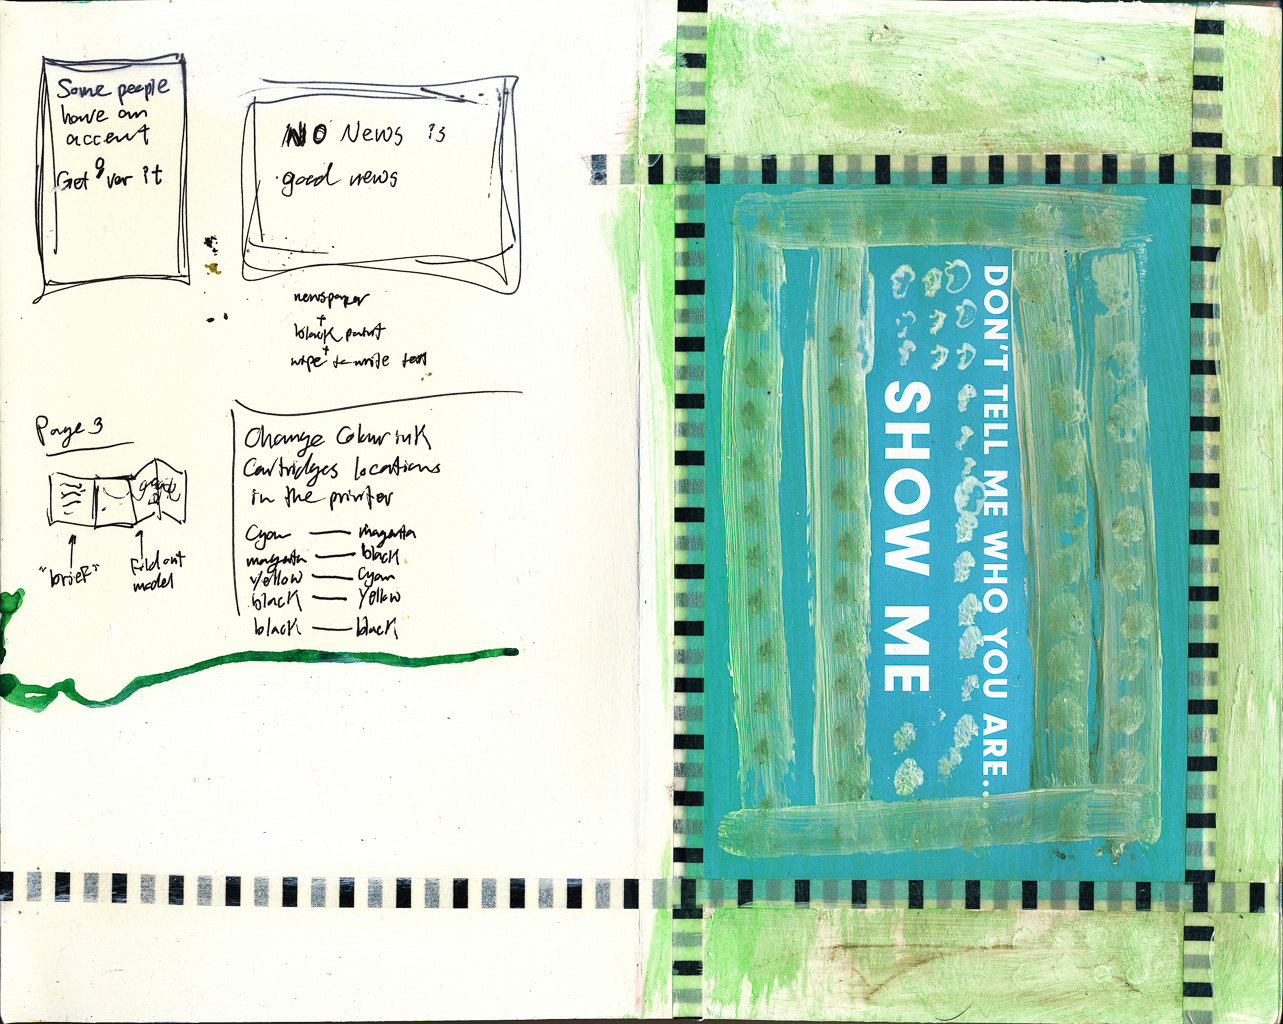 Some people
have an
accent
Get over it
NO News is
good news
newspaper
+
black paint
+
wipe to write text
Page 3
"brief"
Fold out
model
Change Colour ink
Cartridges locations
in the printer
Cyan — magenta
magenta — black
yellow — Cyan
black — yellow
black — black
DON'T TELL ME WHO YOU ARE...
SHOW ME